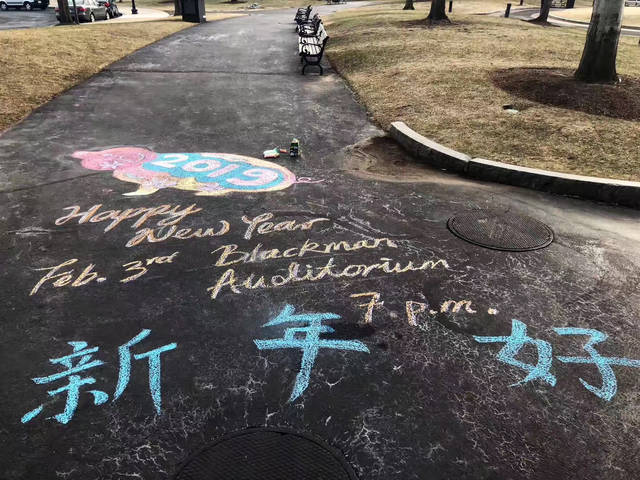 2019
Happy New Year
Feb. 3rd Blackman Auditorium
7 p.m.
新年好